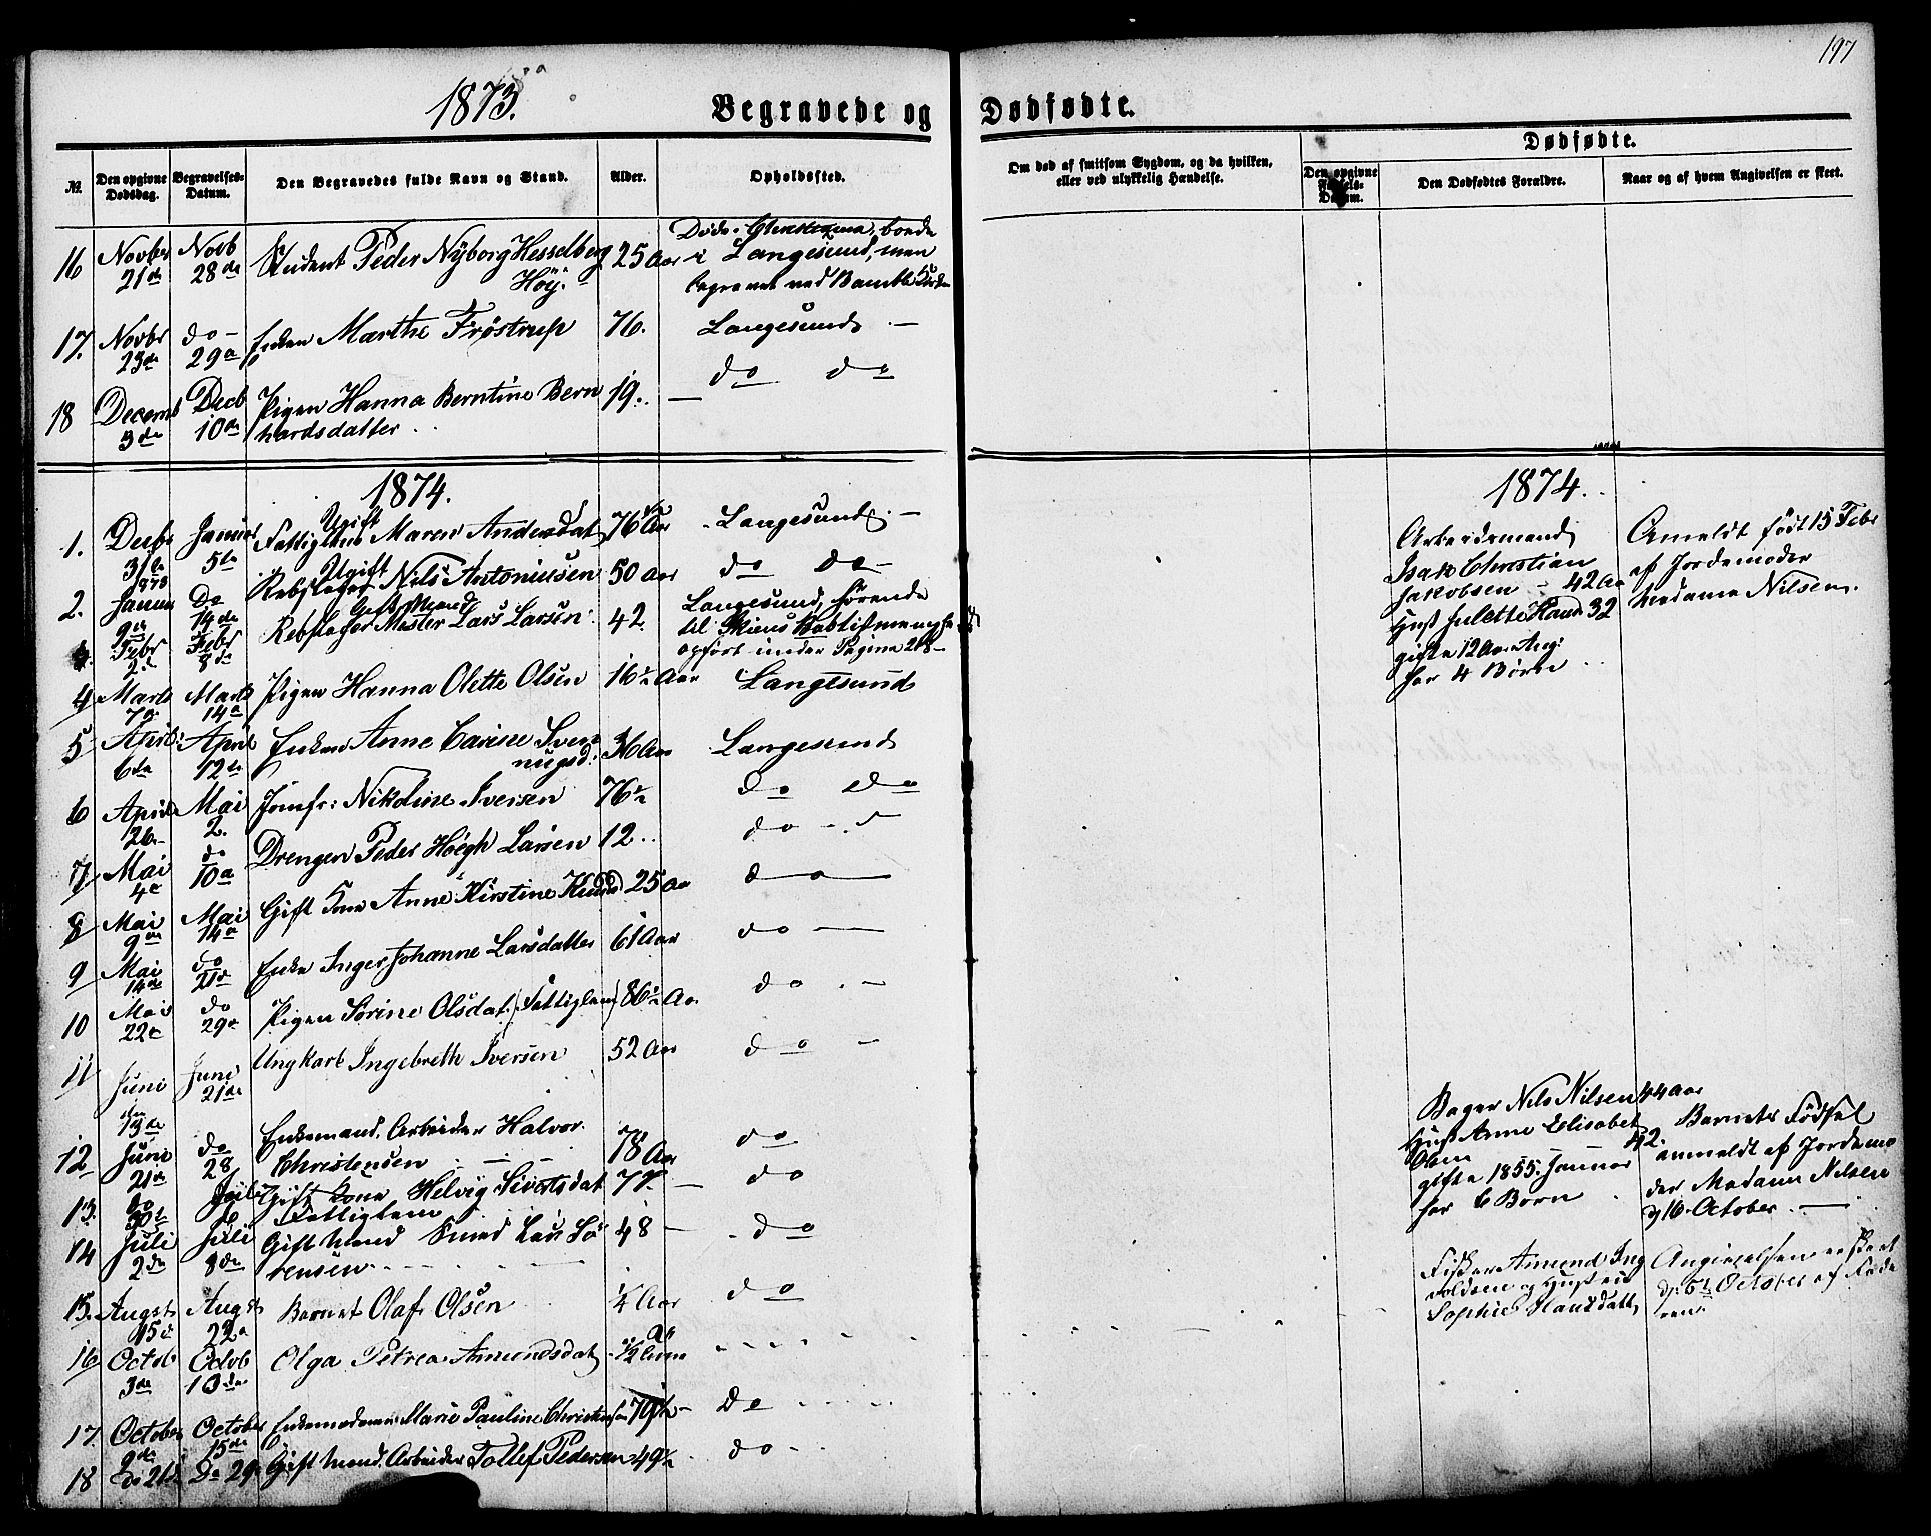 197
1873.
Begravede og Dødfødte.
№
Den opgivne Dødsdag.
Begravelses-Datum.
Den Begravedes fulde Navn og Stand.
Alder.
Opholdssted.
Om død af smitsom Sygdom, og da hvilken, eller ved ulykkelig Hændelse.
Dødfødte.
Den opgivne Fødsels-Datum.
Den Dødfødtes Forældre.
Naar og af hvem Angivelsen er skeet.
16 Novbr 21de Novb 28de Student Peder Nyborg Hesselberg Höy. 25 Aar
Døde i Christiania, boede
i Langesund, men
begravet ved Bamble
17. Novbr 23de do 29de Enken Marthe Fröstrup 76. Langesund
18 Decemb 3de Decb 10de Pigen Hanna Berntine Bern
hardsdatter 19. do do
1874.
1. Decbr 31te 1873 Januar 5te Ugift Fattiglem Maren Andersdat 76½ Aar Langesund
2. Januar 9de Do 14de Ugift Rebslager Nils Antoniusen 50 Aar do do
Febr 2de Febr 8de Gift Mand Rebslager Mester Lars Larsen 42.
Langesund, hörende
til Skiens Babtistmenighed
opfört under Pagina 218
4 Marts 7de Marts 14de Pigen Hanna Olette Olsen 16½ Aar Langesund
5 April 6de April 12te Enken Anne Carine Sven
nugsd. 36 Aar Langesund
6 April 26 Mai 2. Jomfr: Nikoline Iversen 76½ do do
7 Mai 4de do 10de Drengen Peder Höegh Larsen 12 do
8 Mai 9de Mai 14de Gift Kone Anne Kirstine Knuds 25 Aar do
9 Mai 14de do 21de Enke Inger Johanne Larsdatter 61 Aar do
10 Mai 22de do 29de Pigen Sörine Olsdat (Fattiglem) 86½ Aar do
11 Juni den 13de Juni 21de Ungkarl Ingebreth Iversen 52 Aar do
12 Juni 21de do 28 Enkemand. Arbeider Halvor
Christensen 78 Aar do
13. do 30te Juli Gift Kone Helvig Sivertsdat
Fattiglem 77. do
14 Juli 2den Juli 8de Gift Mand Smed Lars Sö
rensen 48 do
15. Augst 15de Augst 22de Barnet Olaf Olsen ¼ Aar do
16 Octob 3de Octob 10de Olga Petrea Amundsdat ½ Aar
17. October 9de October 15de Enkemadame Marie Pauline Christensen 70 Do
18 Do 21de Do 29 Gift Mand. Arbeider Tollef Pedersen 49½ do
1874.
Arbeidsmand
Isak Christian
Jakobsen 42 Aar
Hust Julette 32
gifte 12 Aar
har 4 Börn
Anmeldt födt 15 Febr
af Jordemoder
Madame Nilsen.
Bager Nils Nilsen 44 Aar
Hust Anne Elisabet
Olsen 42.
gifte 1855. Januar
har 6 Börn
Barnets Födsel
anmeldt af Jordemo
der Madam Nilsen
d 16 October.
Fisker Amund Ing
voldsen og Hustru
Sophie Hansdatt
Angivelsen er skeet
d. 5te October af Fade
ren.